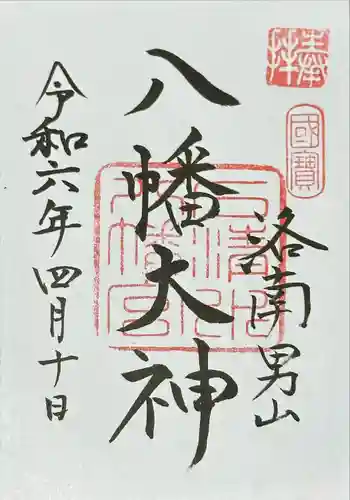 奉拝
國寶
洛南男山
八幡大神
石清水八幡宮
令和六年四月十日